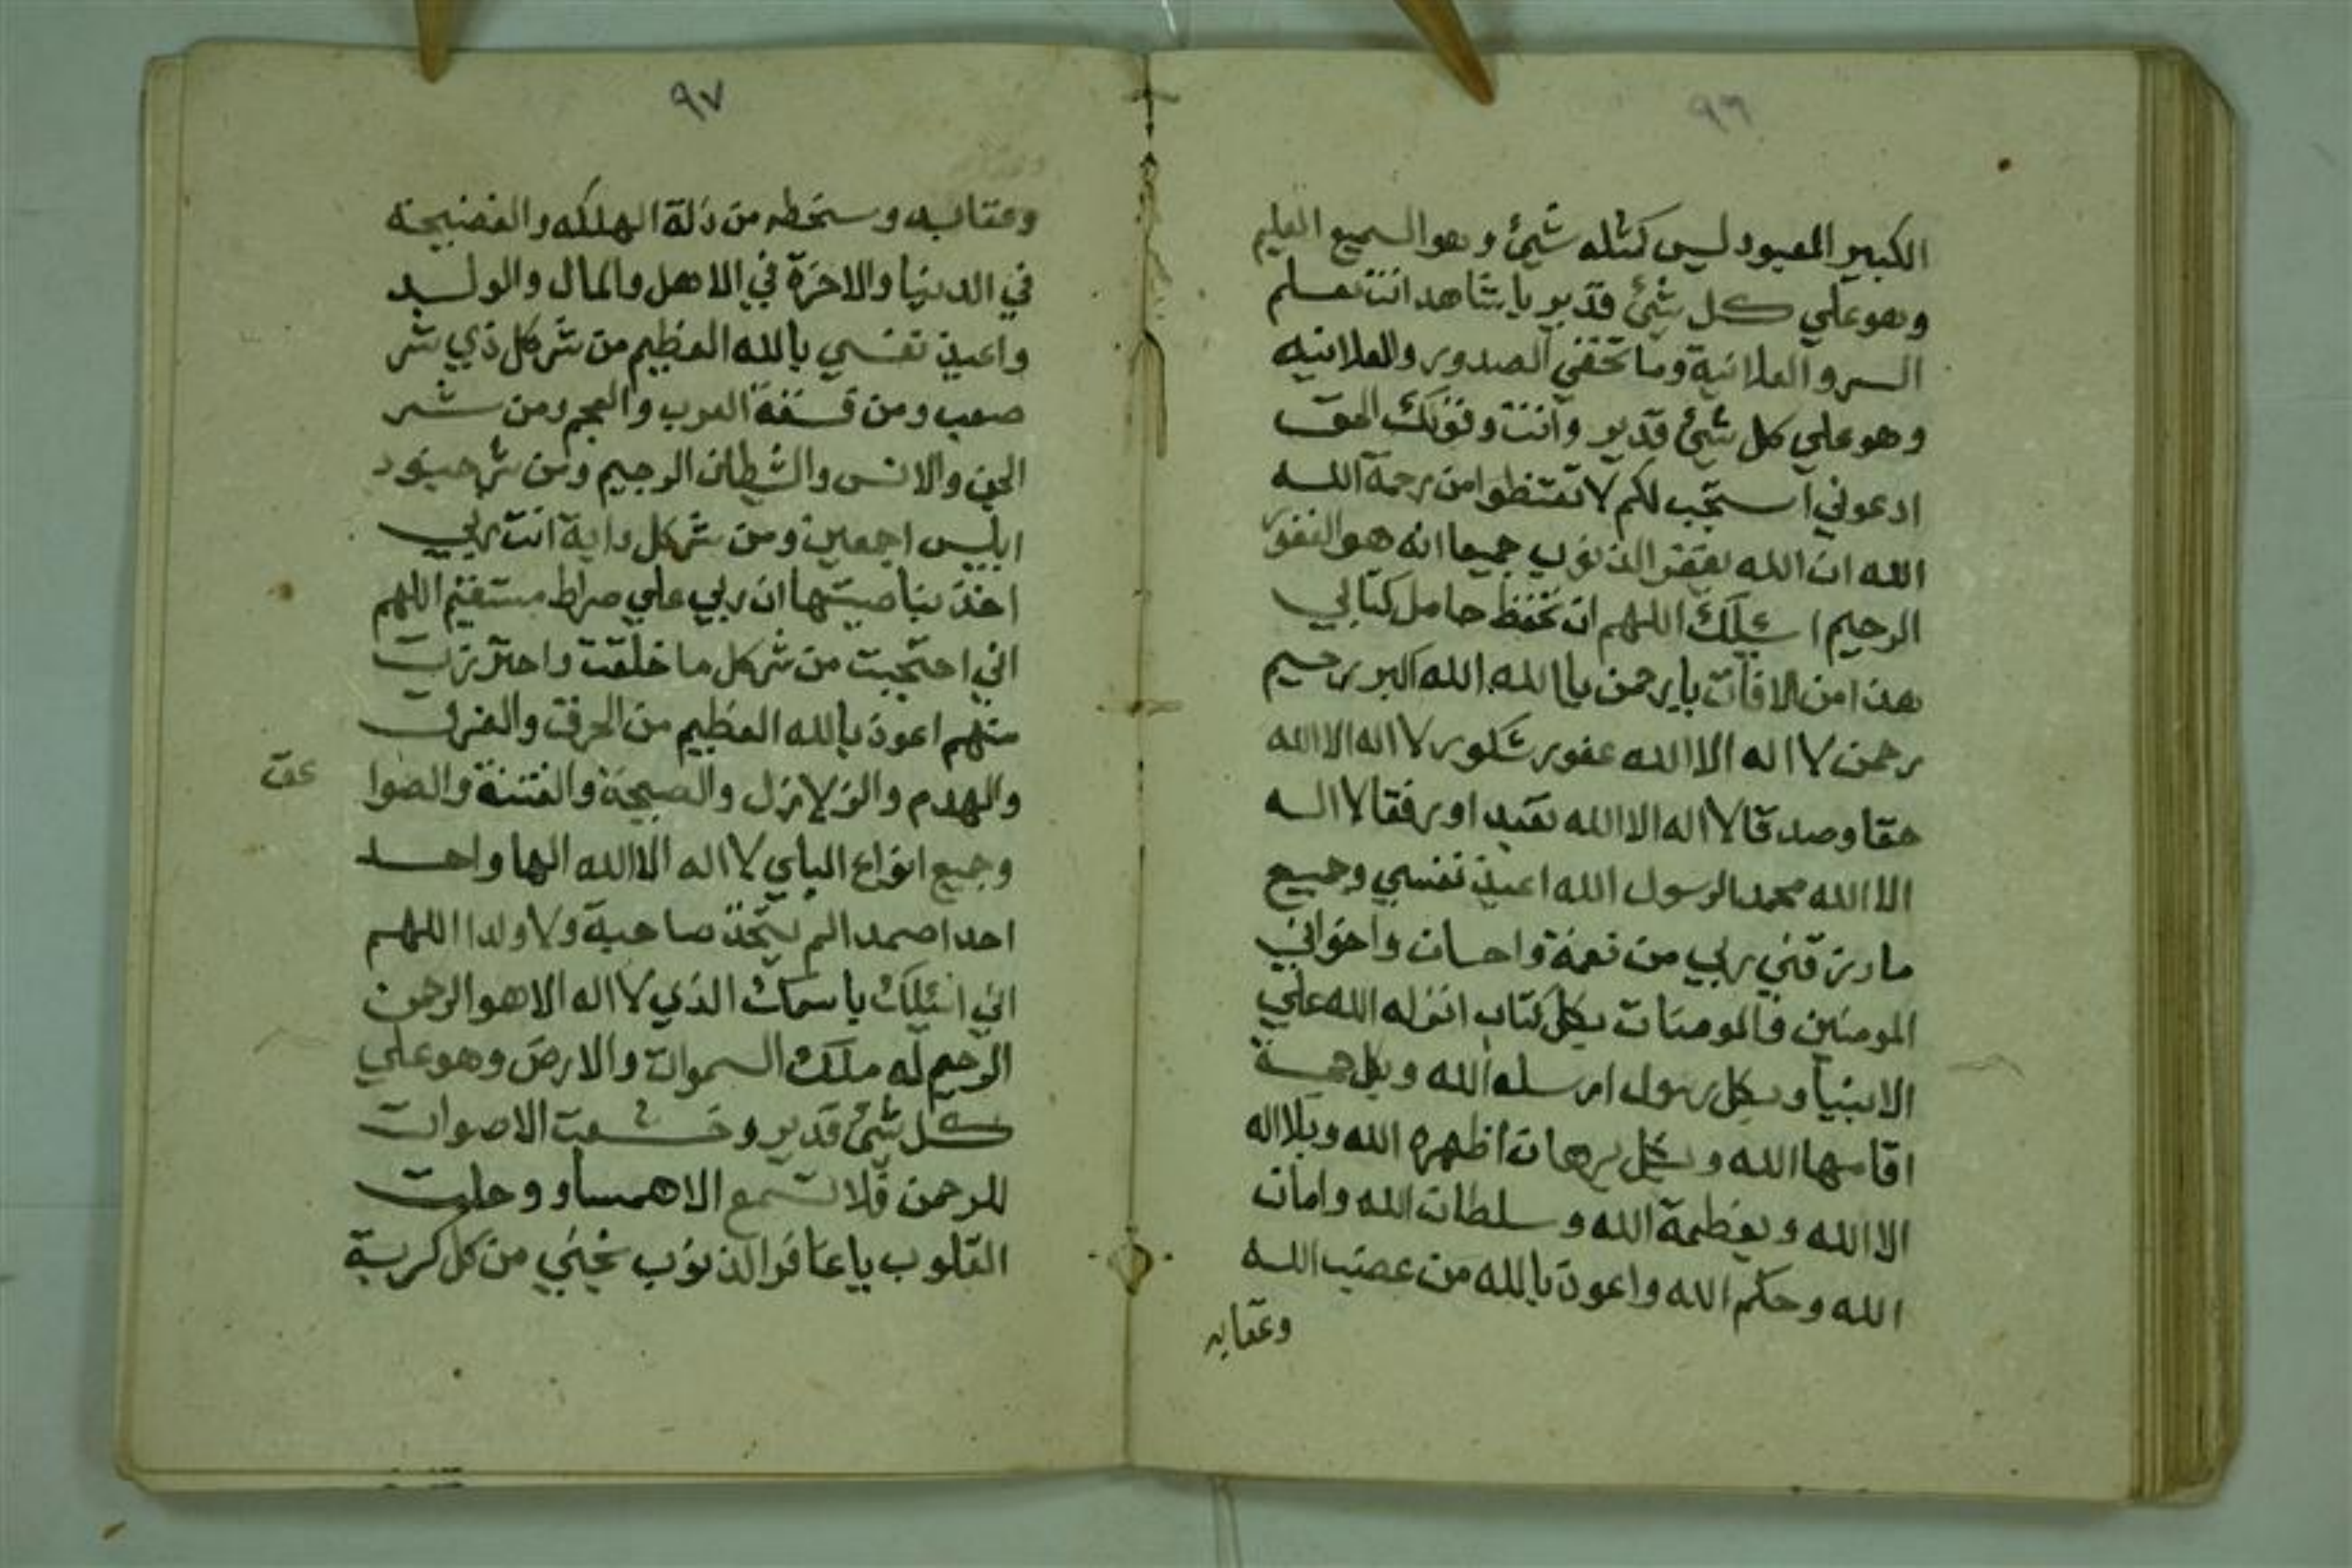 ٩٦
الكبير المعبود ليس كمثله شيئ وهو السميع العليم
وهو علي كل شيئ قدير يا شاهد انت تعلم
السر والعلانية وما تخفي الصدور والعلانيه
وهو علي كل شيئ قدير وانت وقولك الحق
ادعوني استجب لكم لا تقنطوا من رحمة الله
الله ان الله يغفر الذنوب جميعا انه هو الغفور
الرحيم اسئلك اللهم ان تحفظ حامل كتابي
هذا من الافات يا رحمن يا الله الله اكبر رحيم
رحمن لا اله الا الله غفور شكور لا اله الا الله
حقا وصدقا لا اله الا الله تعبدا ورفقا لا اله
الا الله محمد الرسول الله اعيذ نفسي وجميع
ما رزقني ربي من نعمة واحسان واخواني
المومنين والمومنات بكل كتاب انزله الله علي
الانبيا وبكل رسول ارسله الله وبكل حجة
اقامها الله وبكل برهان اظهره الله وبلا اله
الا الله وبعظمة الله وسلطان الله وامان
الله وحكم الله واعوذ بالله من غضب الله
وعقابه
٩٧
وعقابه وسخطه من ذلة الهلكه والفضيحة
في الدنيا والاخرة في الاهل والمال والولد
واعيذ نفسي بالله العظيم من شر كل ذي شر
صعب ومن فسقة العرب والعجم ومن شر
الجن والانس والشطان الرجيم ومن شر جنود
ابليس اجمعين ومن شر كل دابة انت ربي
اخذ بناصيتها ان ربي علي صراط مستقيم اللهم
اني احتجبت من شر كل ما خلقت واحترزت
منهم اعوذ بالله العظيم من الحرق والغرق
والهدم والزلازل والصيحة والفتنة والصوا
عق
وجميع انواع البلاي لا اله الا الله الها واحد
احدا صمدا لم يتخذ صاحبة ولا ولدا اللهم
اني اسئلك باسمك الذي لا اله الا هو الرحمن
الرحيم له ملك السموات والارض وهو علي
كل شيئ قدير وخشعت الاصوات
للرحمن فلا تسمع الا همسا ووجلت
القلوب يا غافر الذنوب نجني من كل كربة